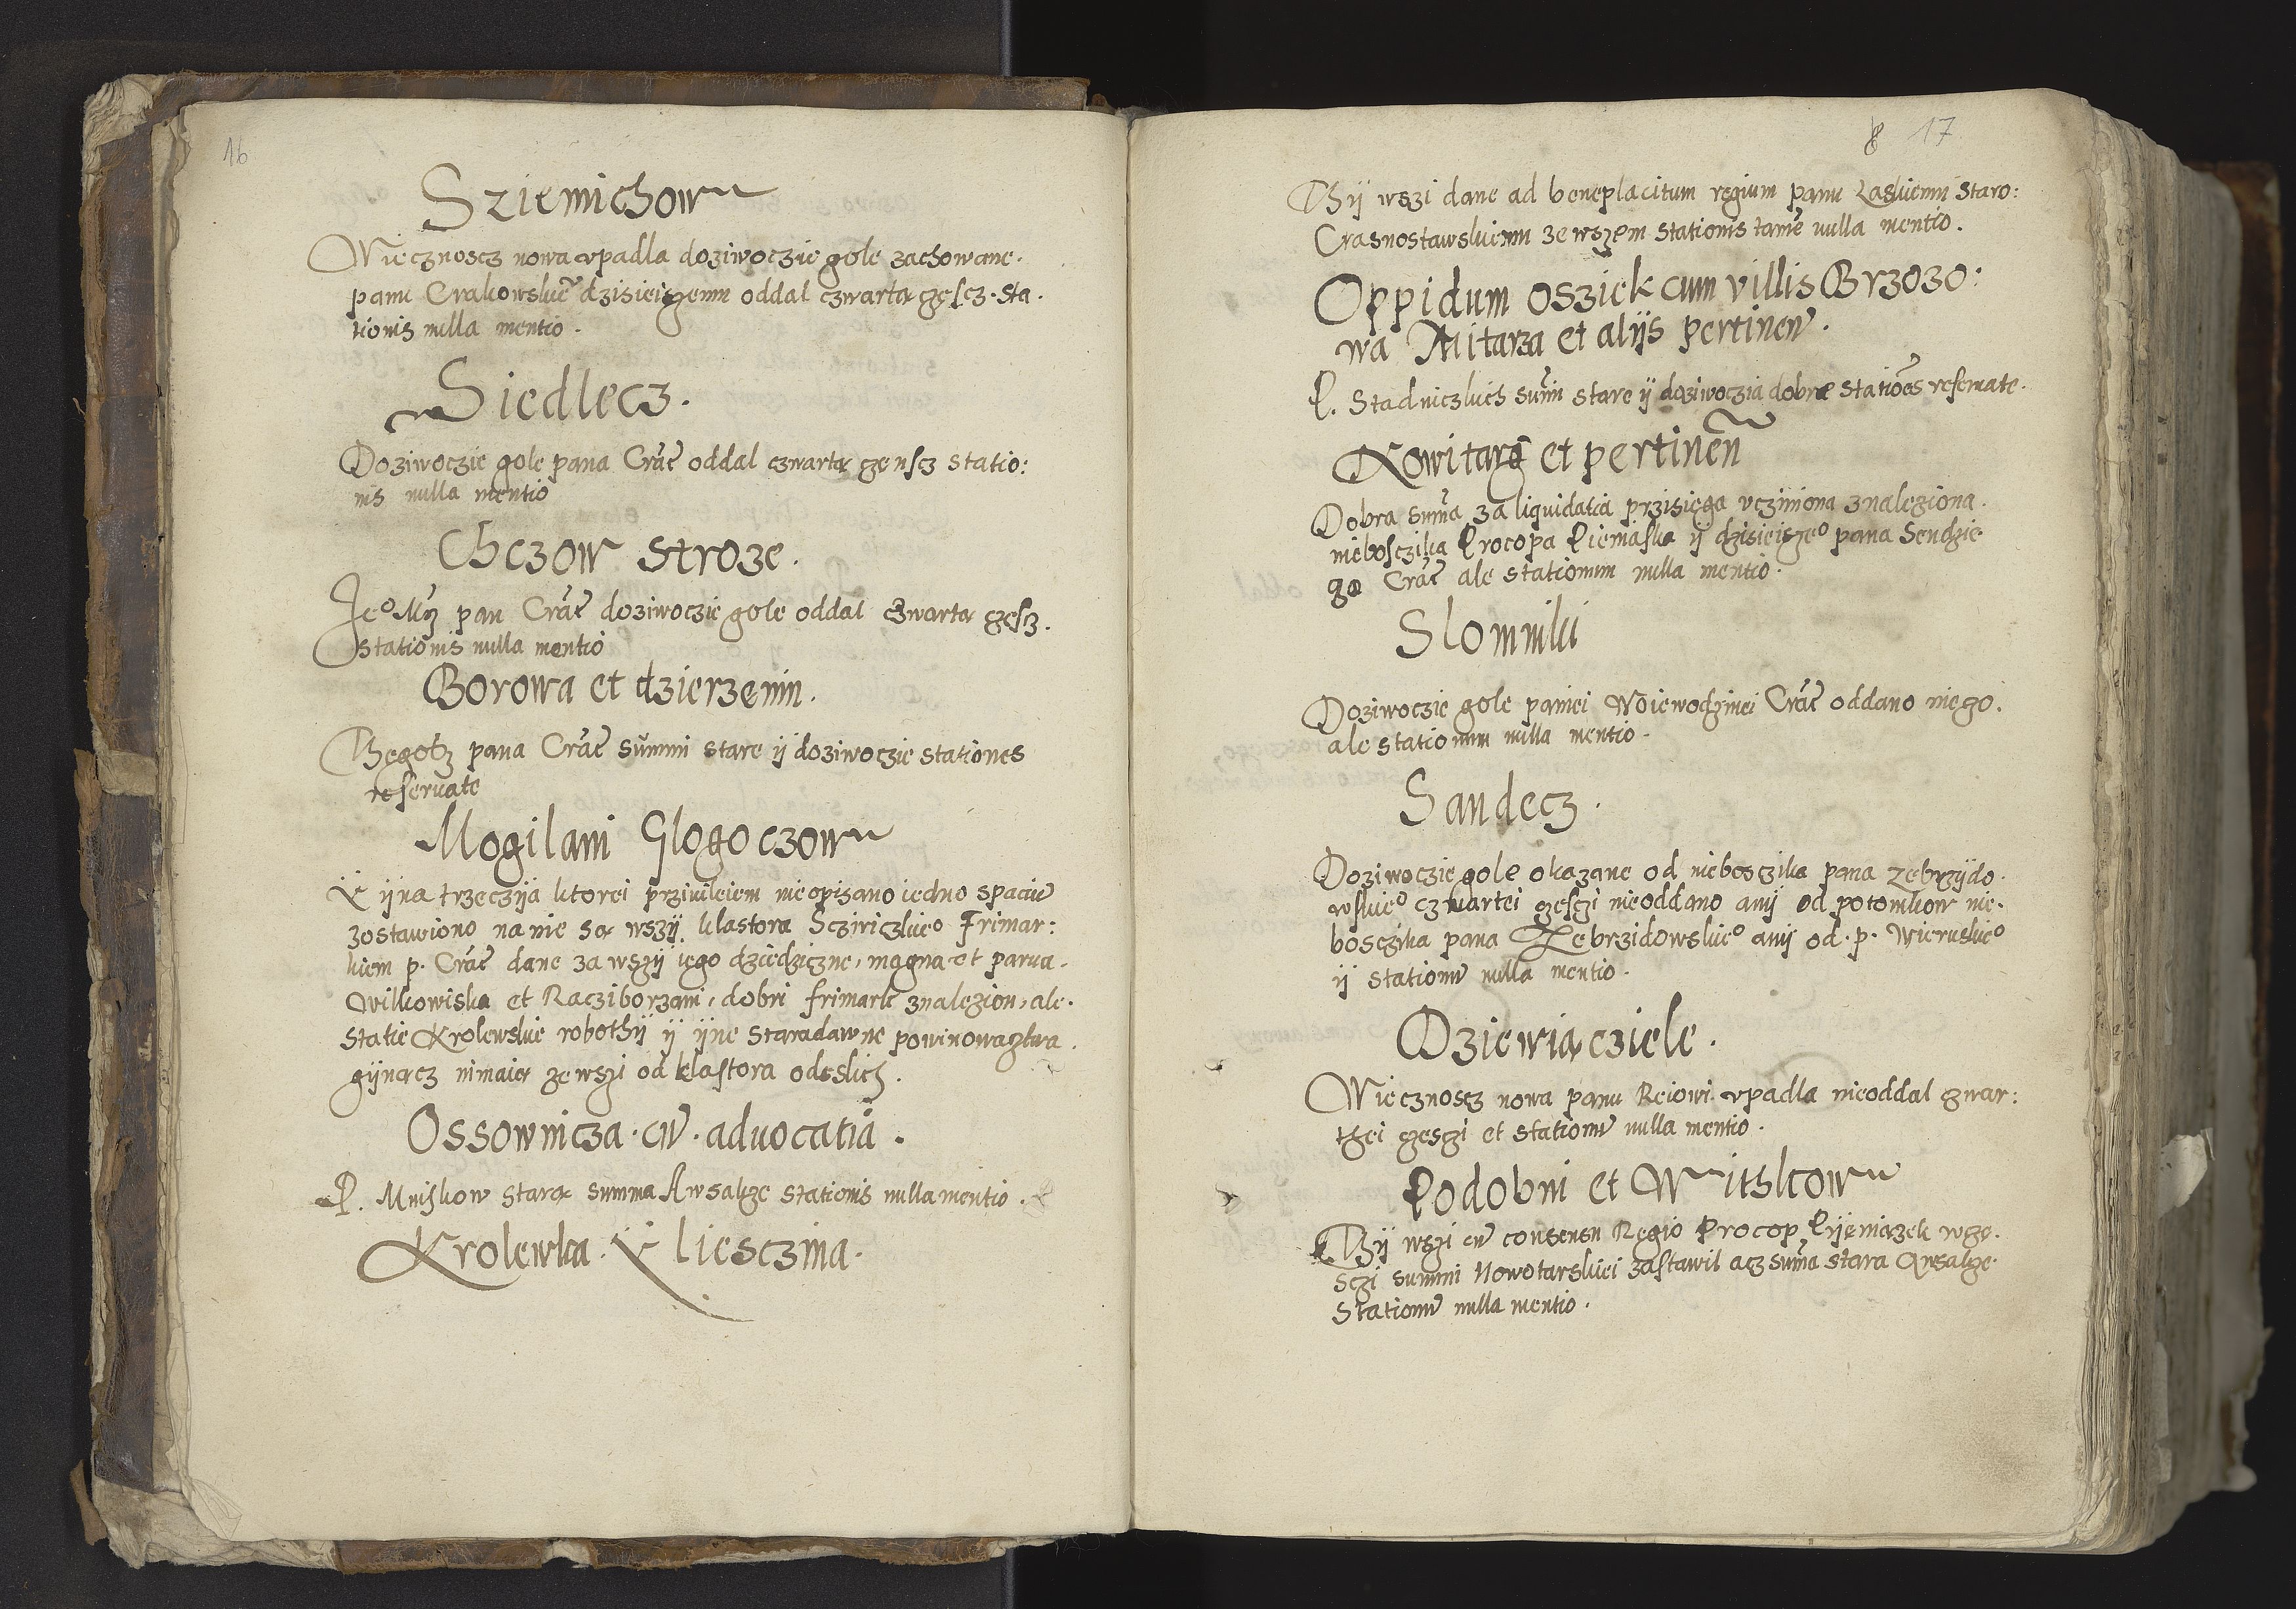 16
Sziemichow
Wiecznoscz nowa upadla doziwoczie gole zachowane.
panu Crakowskie͂ dzisieiszemu oddal czwarta częscz. sta.
tionis nulla mentio.
Siedlecz.
Doziwoczie gole pana Crac̃ oddal czwarta czenscz statio:
nis nulla mentio
Chczow stroze.
Je° Mcz pan Crac̃ doziwoczie gole oddal czwarta częscz.
stationis nulla mentio
Borowa et dzierzenin.
Thegotz pana Crac̃ summi stare ij doziwoczie stationes
reseruate
Mogilani Glogoczow
Y ijna trzeczija ktorei prziuileiem nie opisano iedno spaciu͂
zostawiono na nie są wszij. klastora Scziriczkie° Frimar:
kiem p. Crac̃ dane za wszij iego dziedziczne, magna et parua.
Wilkowiska et Racziborzani, dobri frimark znalezion, ale.
statie Krolewskie robothij ij ijne staradawne powinowacztwa.
gijnącz nimaią ze wszi od klastora odeslich.
Ossownicza. cu͂. aduocatia.
P. Mniszkow stara summa Awsakze stationis nulla mentio.
Krolewka. Y liesczina.
8 17
Thij wszi dane ad beneplacitum regium panu Laskiemu staro:
Crasnostawskiemu ze wszem stationis tame͂ nulla mentio.
Oppidum Osziek cum villis Brzozo:
wa Mitarza et alijs pertinen͂.
P. Stadniczkich sum͂i stare ij doziwoczia dobre statio͂es reseruate.
Nowitarg et pertinen͂
Dobra sum͂a za liquidatią przisięga ucziniona znaleziona.
niebosczika Procopa Pieniaska ij dzisieisze° pana Sendzie
go Crac̃ ale stationum nulla mentio.
Slomniki
Doziwoczie gole paniei Woiewodzinei Crac̃ oddano niego.
ale stationum nulla mentio.
Sandecz.
Doziwoczie gole okazane od niebosczika pana Zebrzijdo.
wskie° czwartei częsczi nieoddano anij od potomkow nie.
bosczika pana Zebrzidowskie° anij od. p. Wieruskie°
ij stationu͂ nulla mentio.
Dziewiącziele.
Wiecznoscz nowa panu Reiowi upadla nieoddal czwar:
thei częsczi et stationu͂ nulla mentio.
Podobni et Withkow
Thij wszi cu͂ consensu Regio Procop Pijeniązek wcze.
sczi summi Nowotarskiei zastawil acz sum͂a stara Awsakze.
Stationu͂ nulla mentio.